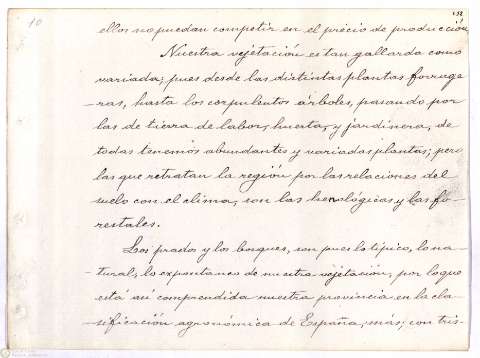 10
ellos no puedan competir en el precio de producción
Nuestra vejetación es tan gallarda como
variada; pues desde las distintas plantas forruge-
-ras, hasta los corpulentos árboles, pasando por
las de tierra de labor, huerta, y jardinera, de
todas tenemos abundantes y variadas plantas; pero
las que retratan la región por las relaciones del
suelo con el clima, son las henológicas y las fo-
restales.
Los prados y los bosques, son pues lo típico, lo na-
-tural, lo expontaneo de nuestra vejetación, por lo que
está así comprendida nuestra provincia en la cla-
-sificación agronómica de España; más, con tris-